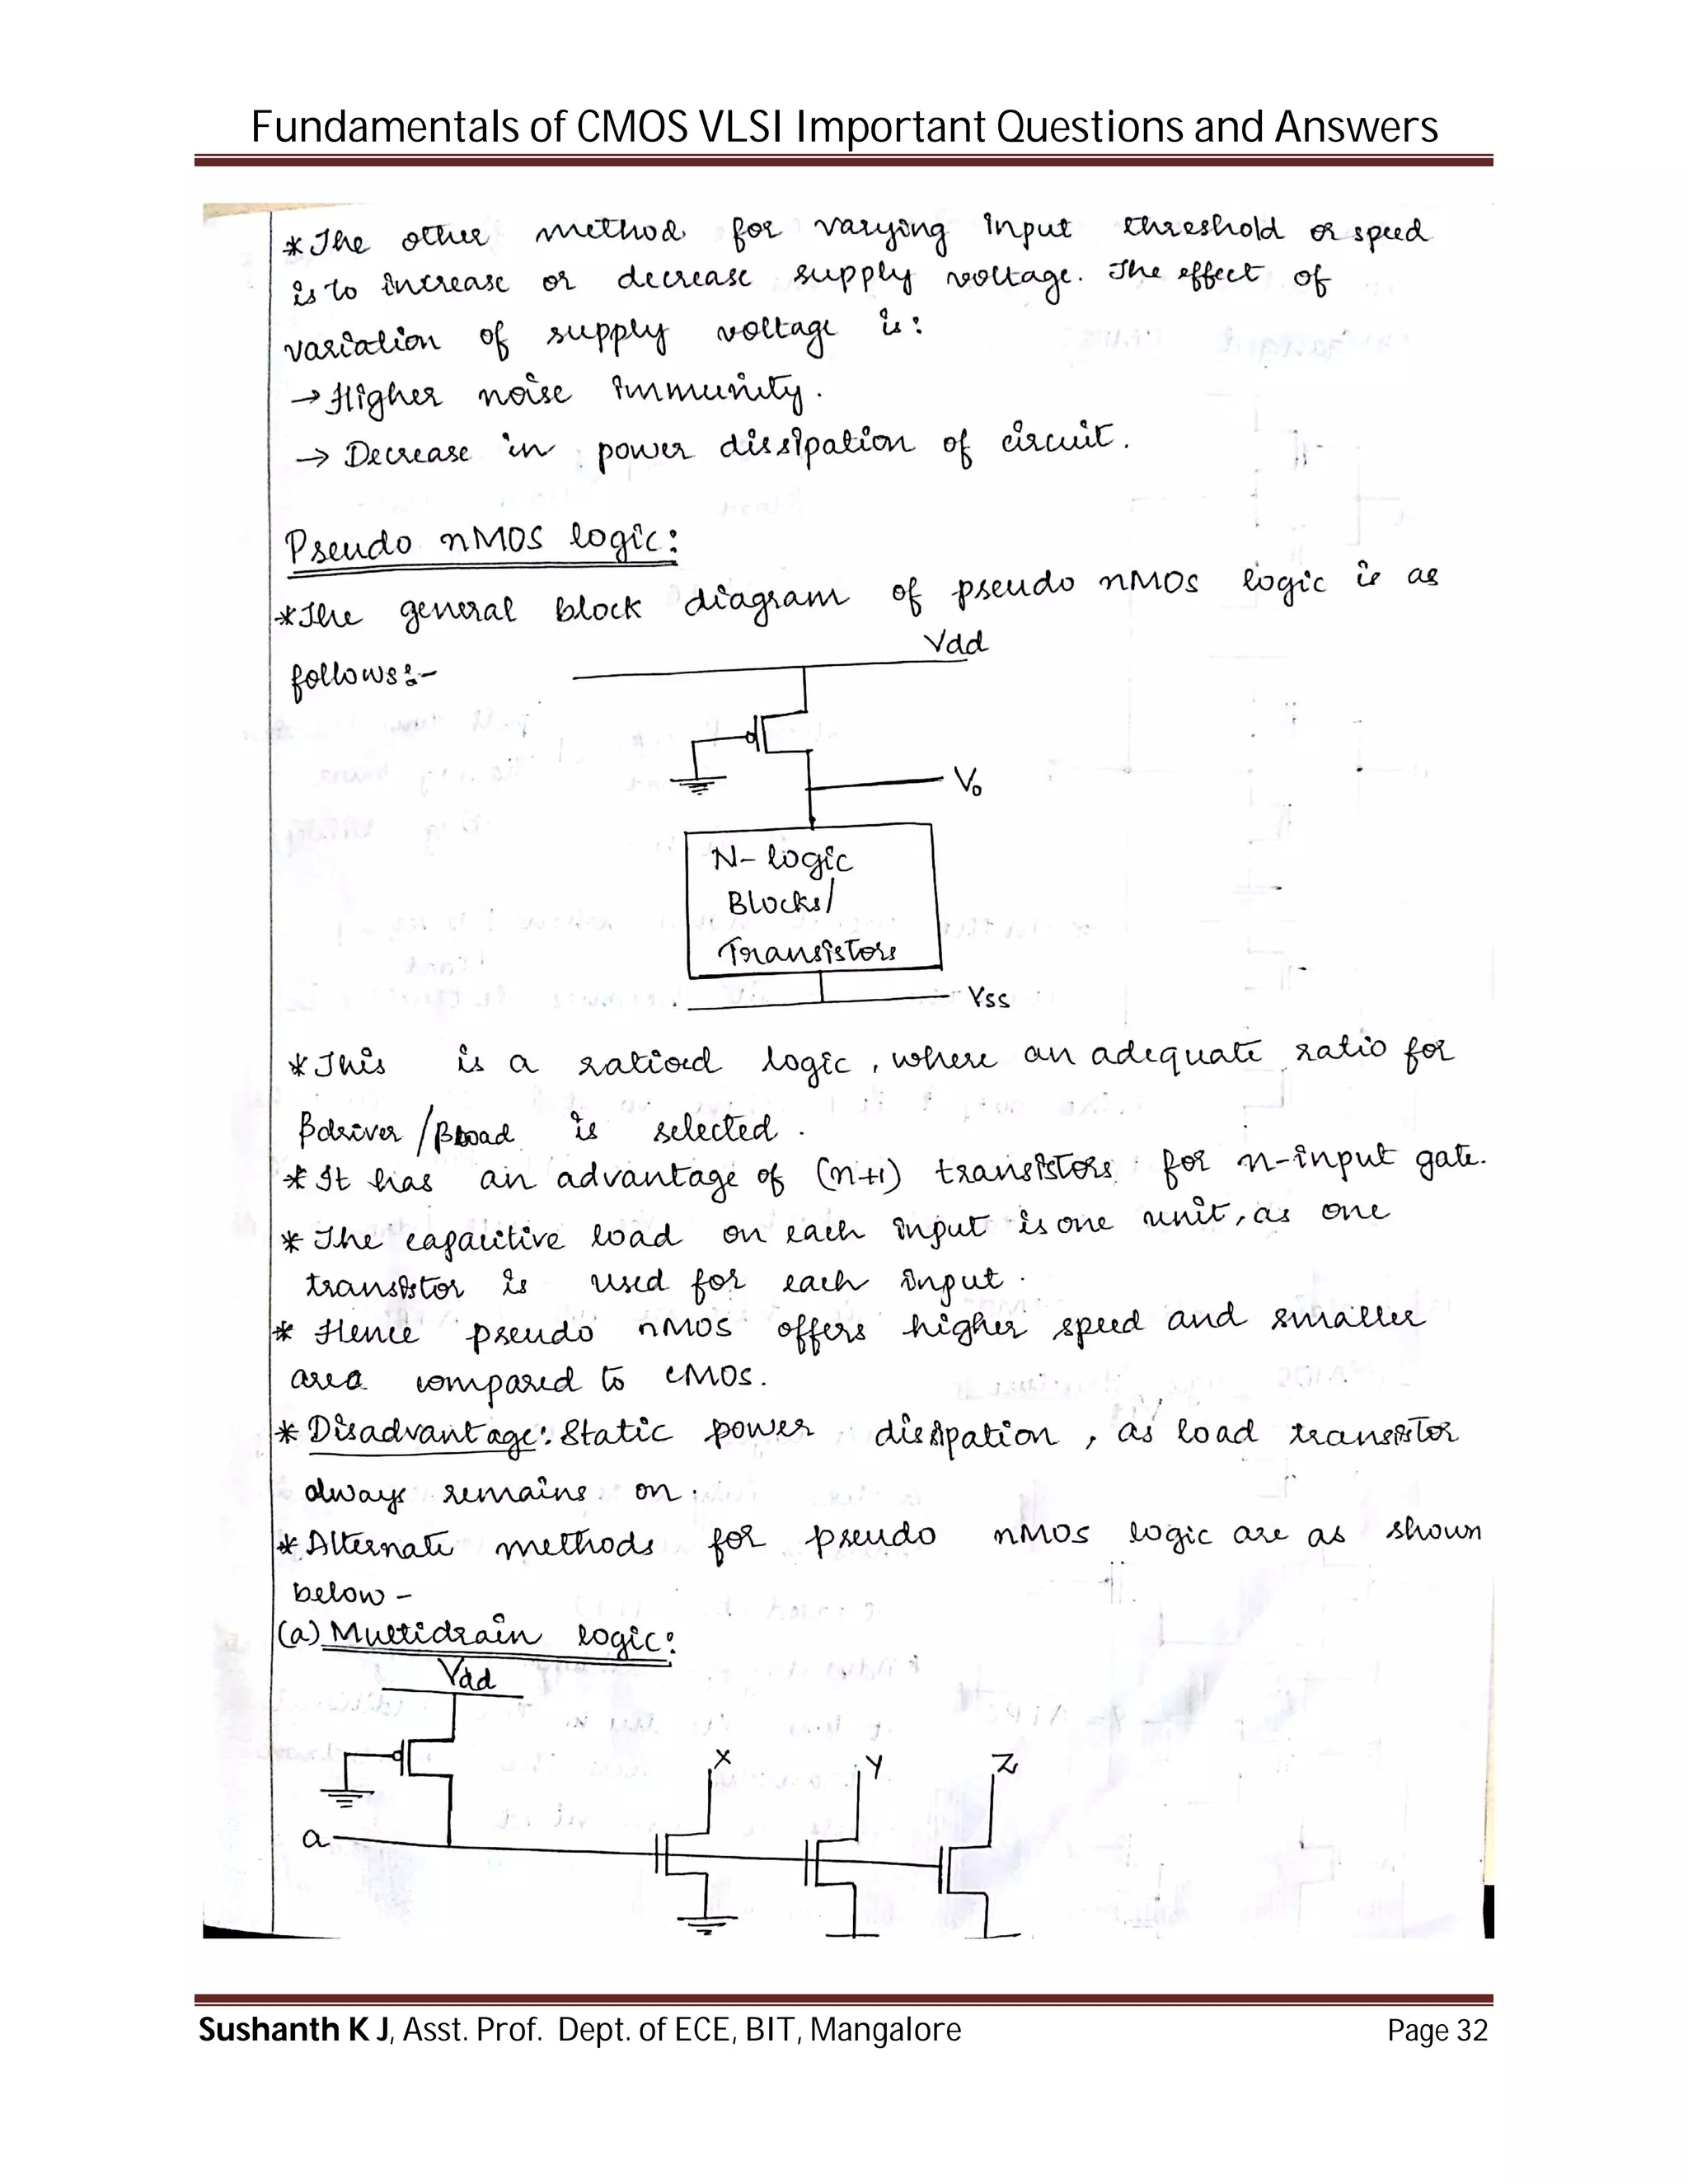 Fundamentals of CMOS VLSI Important Questions and Answers
* The other method for varying input threshold or speed
is to increase or decrease supply voltage. The effect of
variation of supply voltage is :
→ Higher noise immunity.
→ Decrease in power dissipation of circuit.
Pseudo nMOS logic:
* The general block diagram of pseudo nMOS logic is as
follows:-
Vdd
Vo
N- logic
Blocks/
Transistors
Vss
* This is a ratioed logic, where an adequate ratio for
βdriver /βload is selected.
* It has an advantage of (n+1) transistors for n-input gate.
* The capacitive load on each input is one unit, as one
transistor is used for each input.
* Hence pseudo nMOS offers higher speed and smaller
area compared to CMOS.
* Disadvantage: Static power dissipation, as load transistor
always remains on.
* Alternate methods for pseudo nMOS logic are as shown
below -
(a) Multidrain logic:
Vdd
X Y Z
a
Sushanth K J, Asst. Prof. Dept. of ECE, BIT, Mangalore Page 32